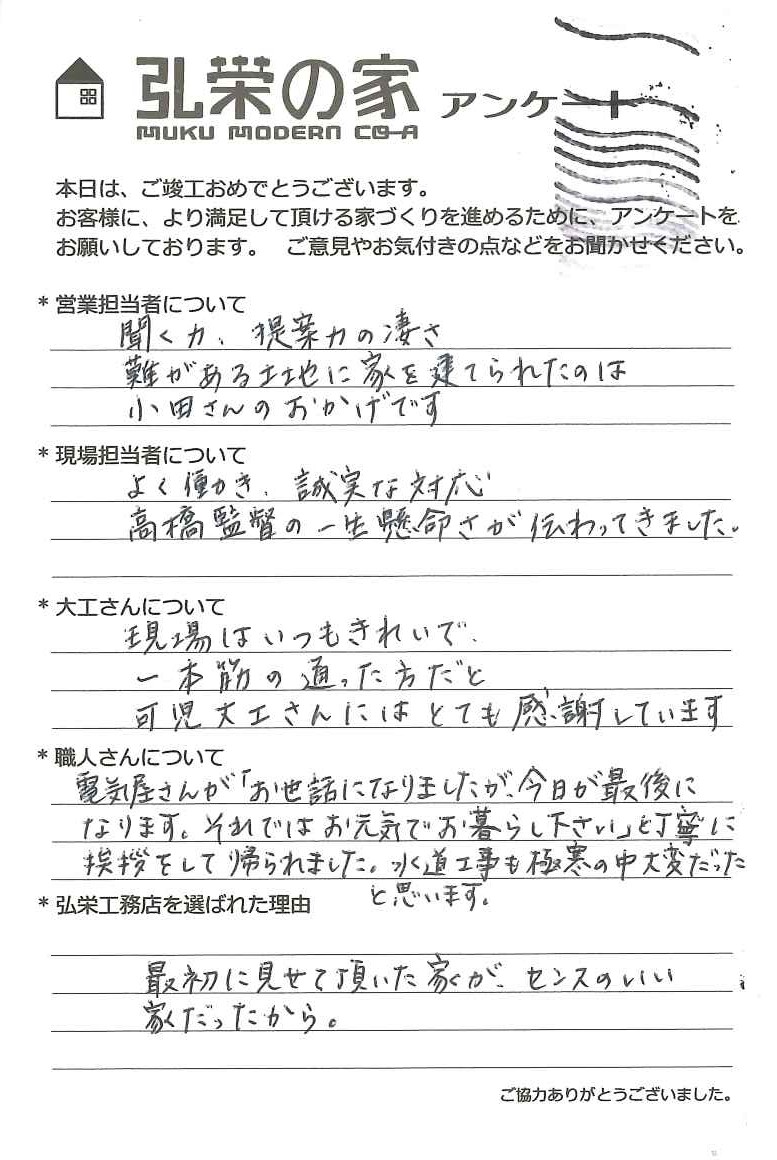 弘栄の家 アンケート
MUKU MODERN CO-A
本日は、ご竣工おめでとうございます。
お客様に、より満足して頂ける家づくりを進めるために、アンケートを
お願いしております。　ご意見やお気付きの点などをお聞かせください。
* 営業担当者について
聞く力、提案力の凄さ
難がある土地に家を建てられたのは
小田さんのおかげです
* 現場担当者について
よく働かき、誠実な対応
高橋監督の一生懸命さが伝わってきました。
* 大工さんについて
現場はいつもきれいで、
一本筋の通った方だと
可児大工さんにはとても感謝しています
* 職人さんについて
電気屋さんが「お世話になりましたが、今日が最後に
なります。それではお元気でお暮らし下さい」と丁寧に
挨拶をして帰られました。水道工事も極寒の中大変だった
と思います。
* 弘栄工務店を選ばれた理由
最初に見せて頂いた家が、センスのいい
家だったから。
ご協力ありがとうございました。